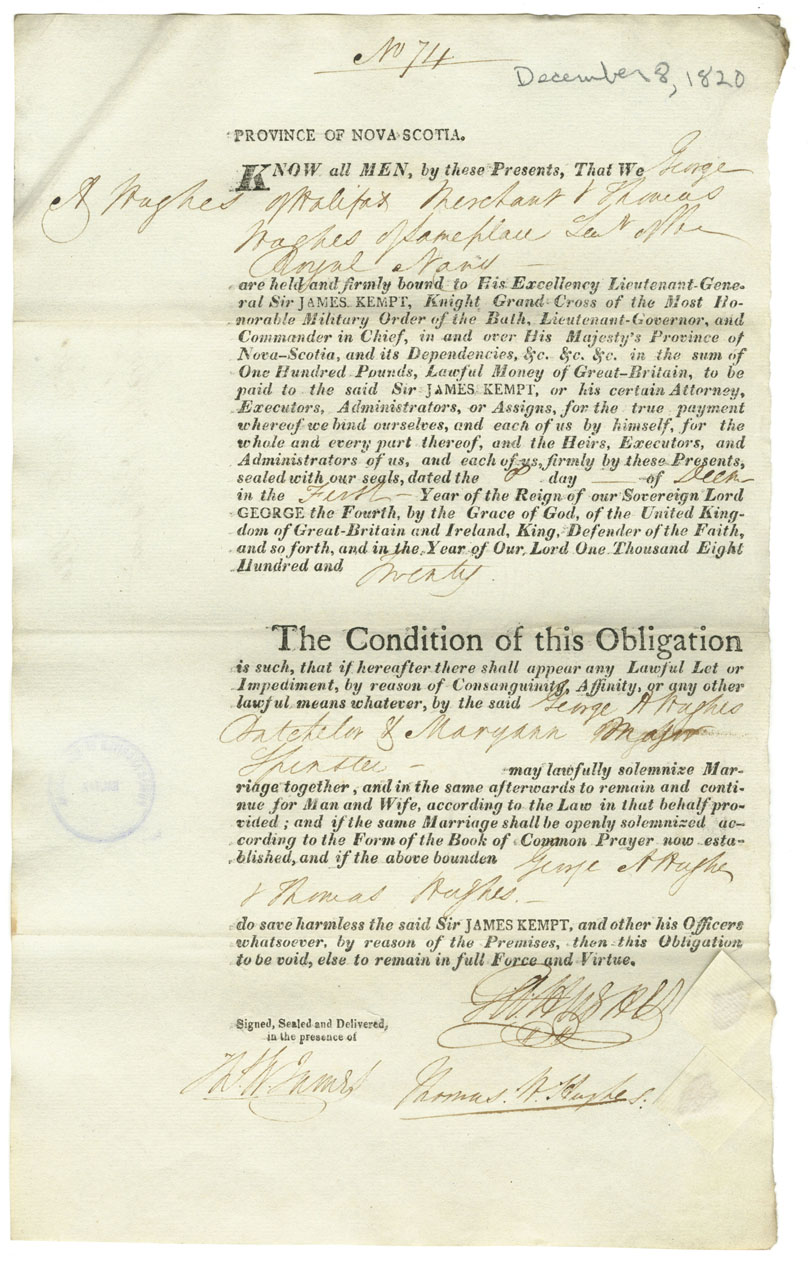 No 74
December 8, 1820
PROVINCE OF NOVA SCOTIA.
KNOW all MEN, by these Presents, That We George
A Hughes of Halifax Merchant & Thomas
Hughes of same place Lieut of the
Royal Navy —
are held and firmly bound to His Excellency Lieutenant-Gene-
ral Sir JAMES KEMPT, Knight Grand-Cross of the Most Ho-
norable Military Order of the Bath, Lieutenant-Governor, and
Commander in Chief, in and over His Majesty's Province of
Nova-Scotia, and its Dependencies, &c. &c. &c. in the sum of
One Hundred Pounds, Lawful Money of Great-Britain, to be
paid to the said Sir JAMES KEMPT, or his certain Attorney,
Executors, Administrators, or Assigns, for the true payment
whereof we bind ourselves, and each of us by himself, for the
whole and every part thereof, and the Heirs, Executors, and
Administrators of us, and each of us, firmly by these Presents,
sealed with our seals, dated the 8 day — of Decr
in the First — Year of the Reign of our Sovereign Lord
GEORGE the Fourth, by the Grace of God, of the United King-
dom of Great-Britain and Ireland, King, Defender of the Faith,
and so forth, and in the Year of Our Lord One Thousand Eight
Hundred and Twenty.
The Condition of this Obligation
is such, that if hereafter there shall appear any Lawful Let or
Impediment, by reason of Consanguinity, Affinity, or any other
lawful means whatever, by the said George A Hughes
Batchelor & Maryann Major
Spinster — may lawfully solemnize Mar-
riage together, and in the same afterwards to remain and conti-
nue for Man and Wife, according to the Law in that behalf pro-
vided; and if the same Marriage shall be openly solemnized ac-
cording to the Form of the Book of Common Prayer now esta-
blished, and if the above bounden George A Hughes
& Thomas Hughes —
do save harmless the said Sir JAMES KEMPT, and other his Officers
whatsoever, by reason of the Premises, then this Obligation
to be void, else to remain in full Force and Virtue.
Signed, Sealed and Delivered,
in the presence of
Thos. W. James
Thomas. W. Hughes.